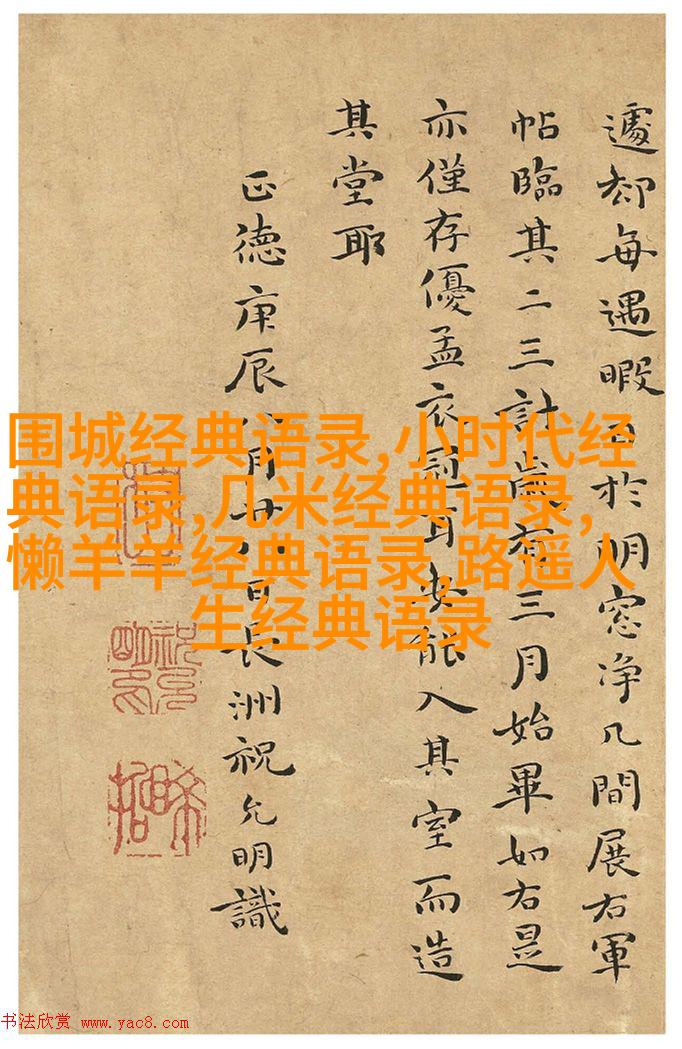 遽却每遇暇日於明窓净几間展右軍
帖臨其二三計歲有三月始畢如右是
亦僅存優孟衣冠耳安能入其室而造
其堂耶
正德庚辰八月廿日長洲祝允明識
围城经典语录,小时代经
典语录,几米经典语录,
懒羊羊经典语录,路遥人
生经典语录
书法欣赏 www.yac8.com